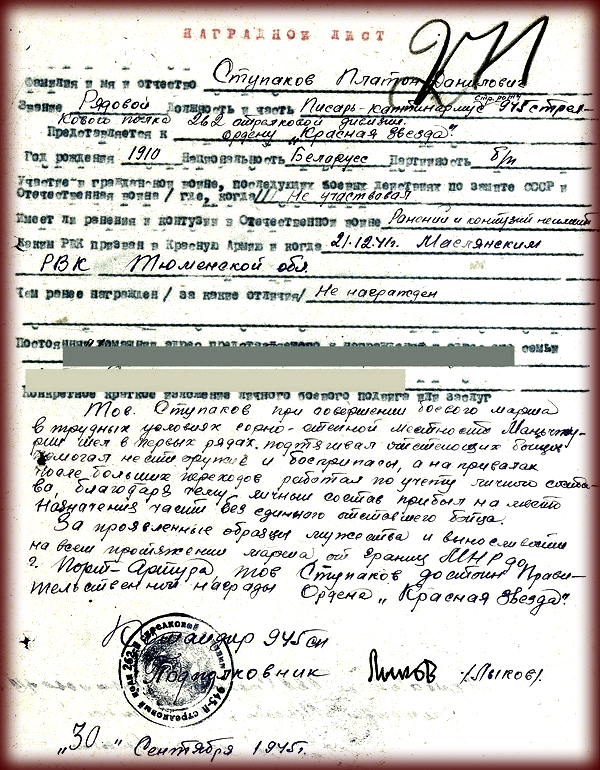 НАГРАДНОЙ ЛИСТ
Фамилия и мя и отчество Ступаков Платон Данилович
Звание Рядовой Должность и часть Писарь-каптинармус стр. роты 945 стрел-
кового полка 262 стрелковой дивизии.
Представляется к ордену „Красная Звезда"
Год рождения 1910 Национальность Беларусс Партийность б/п
Участие в гражданской войне, последующих боевых действиях по защите СССР и
Отечественная война / где, когда/ Не участвовал
Имеет ли ранения и контузии в Отечественной войне Ранений и контузий не имеет
Каким РВК призван в Красную Армию и когда 21.12.41г. Маслянским
РВК Тюменской обл.
Чем ранее награжден / за какие отличия/ Не награжден
Постоянный домашний адрес представляемого к награждению и адрес его семьи
Конкретное краткое изложение личного боевого подвига или заслуг
Тов. Ступаков при совершении боевого марша
в трудных условиях горно-степной местности Маньчжу-
рии шел в первых рядах. подтягивал отстающих бойцов
помогал нести оружие и боеприпасы, а на привалах
после больших переходов работал по учету личного соста-
ва, благодаря чему личный состав прибыл на место
назначения части без единого отставшего бойца.
За проявленные образцы мужества и выносливости
на всем протяжении марша от границ МНР до
г. Порт-Артура, тов Ступаков достоин Прави-
тельственной награды Ордена „Красная Звезда".
Командир 945 сп
Подполковник Лыков /Лыков/.
„30" Сентября 1945г.